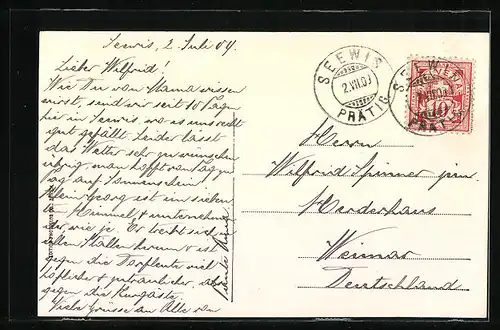 Seewis, 2. Juli 09.
Lieber Wilfried!
Wie Du von Mama wissen
wirst, sind wir seit 10 Tagen
hier in Seewis, wo es uns recht
gut gefällt. Leider lässt
das Wetter sehr zu wünschen
übrig, man hofft von Tag zu
Tag auf Sonnenschein.
Klein Georg ist im sieben-
ten Himmel, & unternehmen-
der, wie je. Er treibt sich in
allen Ställen herum & ist
gegen die Dorfleute viel
höflicher & zutraulicher, als
gegen die Kurgäste.
Viele Grüsse an Alle von
SEEWIS
2.VII.09
PRÄTIG.
HELVETIA
10
Herrn
Wilfrid Spinner jun.
Herderhaus
Weimar
Deutschland